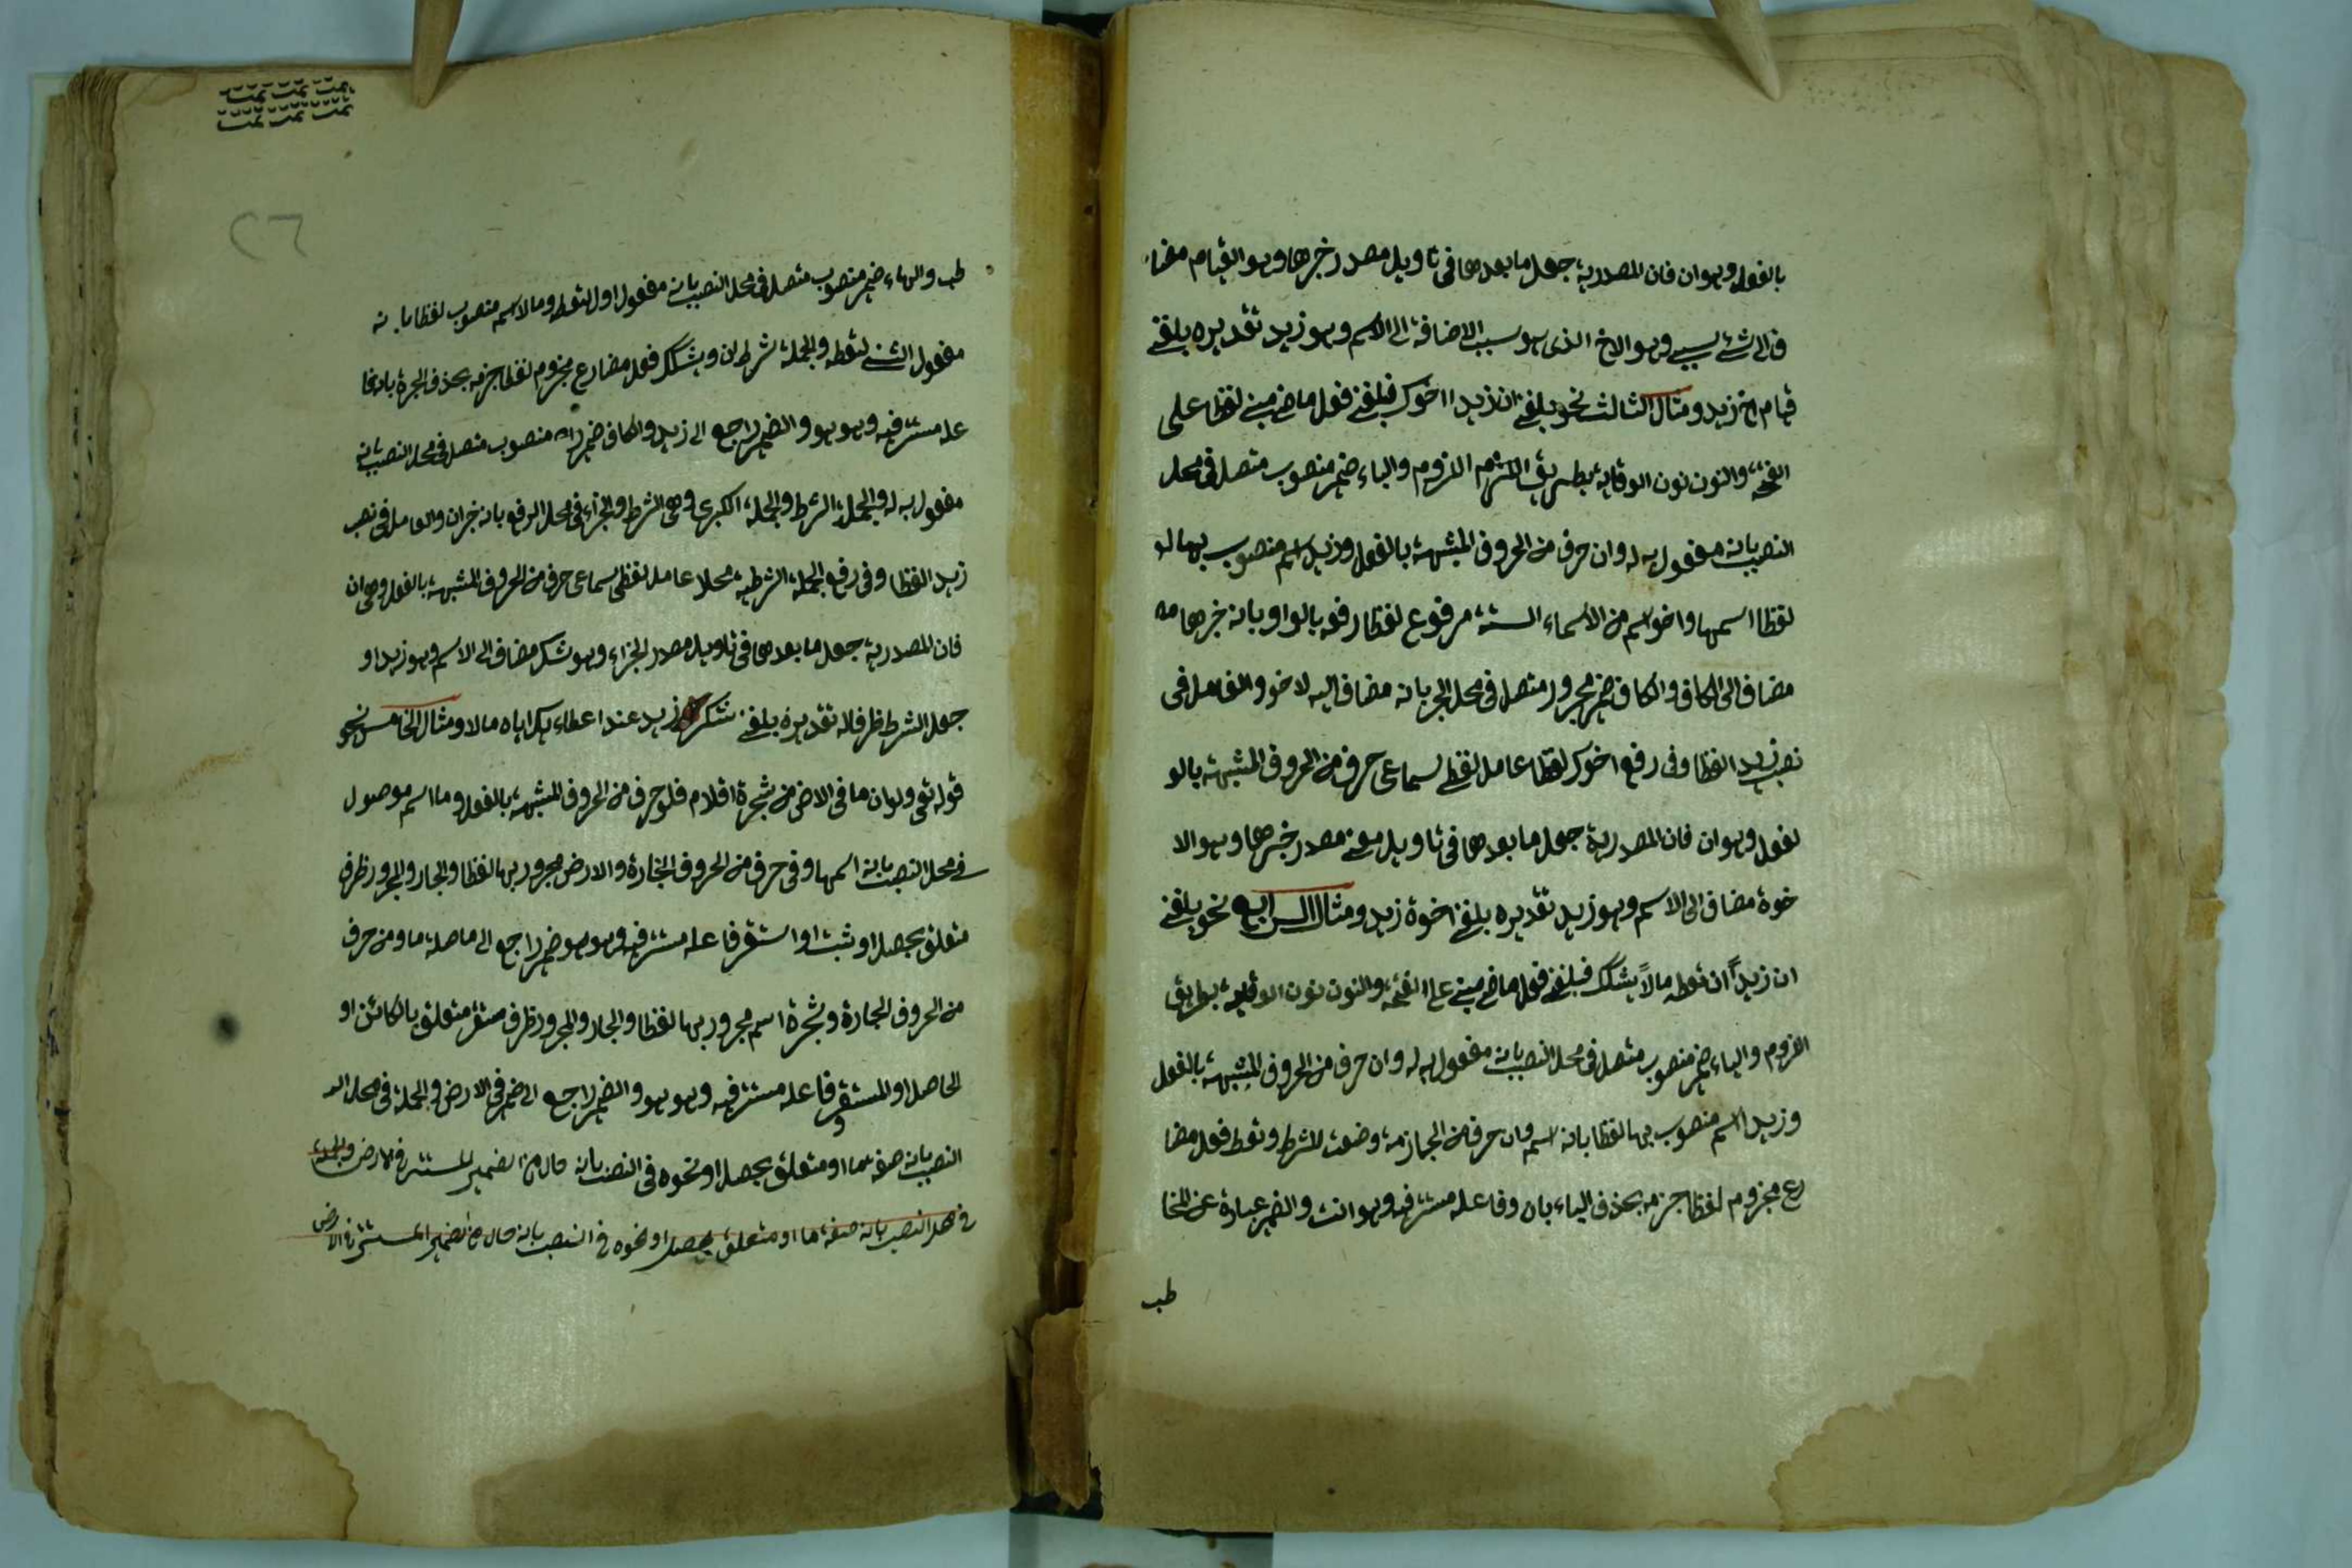 بالفعل وهو ان فان المصدرية جعل ما بعدها فى تاويل مصدر خبرها وهو القيام مضا
ف الى شئ سببى وهو الاخ الذى هو سبب الاضافة الى الاسم وهو زيد تقديره بلغنى
قيام اخ زيد ومثال الثالث نحو بلغنى ان زيدا اخوك فبلغنى فعل ماض مبنى لفظا على
الفتحة والنون نون الوقاية بطريق اللزوم والياء ضمير منصوب متصل فى محل
النصب بانه مفعول به له وان حرف من الحروف المشبهة بالفعل وزيد اسم منصوب بها لو
لفظا اسمها واخو اسم من الاسماء الستة مرفوع لفظا رفعه بالواو بانه خبرها مه
مضاف الى الكاف والكاف ضمير مجرور متصل فى محل الجر بانه مضاف اليه لاخو والعامل فى
نصب زيد لفظا وفى رفع اخوك لفظا عامل لفظى سماعى حرف من الحروف المشبهة بالو
لفعل وهو ان فان المصدرية جعل ما بعدها فى تاويل معنى مصدر خبرها وهو الا
خوة مضاف الى الاسم وهو زيد تقديره بلغنى اخوة زيد ومثال الرابع نحو بلغنى
ان زيداً ان تعطه مالاً يشكرك فبلغنى فعل ماض مبنى على الفتحة والنون نون الوقاية بطريق
اللزوم والياء ضمير منصوب متصل فى محل النصب بانه مفعول به له وان حرف من الحروف المشبهة بالفعل
وزيد اسم منصوب بها لفظا بانه اسم وان حرف من الجازمة وضعت للشرط وتعط فعل مضا
رع مجزوم لفظا جزمه بحذف الياء بان وفاعله مستتر فيه وهو انت والضمير عبارة عن المخا
طب
طب والهاء ضمير منصوب متصل فى محل النصب بانه مفعول اول لتعط ومالا اسم منصوب لفظا بانه
مفعول الثنى لتعطه والجملة شرط ان ويشكرك فعل مضارع مجزوم لفظا جزمه بحذف الحركة بان فا
عله مستتر فيه وهو هو والضمير راجع الى زيد والكاف ضمير منصوب متصل فى محل النصب بانه
مفعول به له والجملة الشرط والجملة الكبرى وهى الشرط والجزاء فى محل الرفع بانه خبر ان والعامل فى نصب
زيد لفظا وفى رفع الجملة الشرطية محلا عامل لفظى سماعى حرف من الحروف المشبهة بالفعل وهى ان
فان المصدرية جعل ما بعدها فى تاويل مصدر الجزاء وهو شكر مضاف الى الاسم وهو زيد او
جعل الشرط ظرفا له تقديره بلغنى شكر زيد عند اعطاء بكر اياه مالا ومثال الخامس نحو
قوله تعى ولو ان ما فى الارض من شجرة اقلام فلو حرف من الحروف المشبهة بالفعل وما اسم موصول
فى محل النصب بانه اسمها وفى حرف من الحروف الجارة والارض مجرور بها لفظا والجار والمجرور ظرف
متعلق بحصل او ثبت او استقر فاعله مستتر فيه وهو هو ضمير راجع الى ما صلة ما ومن حرف
من الحروف الجارة وشجرة اسم مجرور بها لفظا والجار والمجرور ظرف مستقر متعلق بالكائن او
الحاصل او المستقر فاعله مستتر فيه وهو هو والضمير راجع الى ضمير فى الارض والجملة فى محل الر
النصب بانه صفة ما او متعلق بحصل او نحوه فى النصب بانه حال من الضمير المستتر فى الارض والجملة
فى محل النصب بانه صفة ما او متعلق بحصل او نحوه فى النصب بانه حال من الضمير المستتر فى الارض